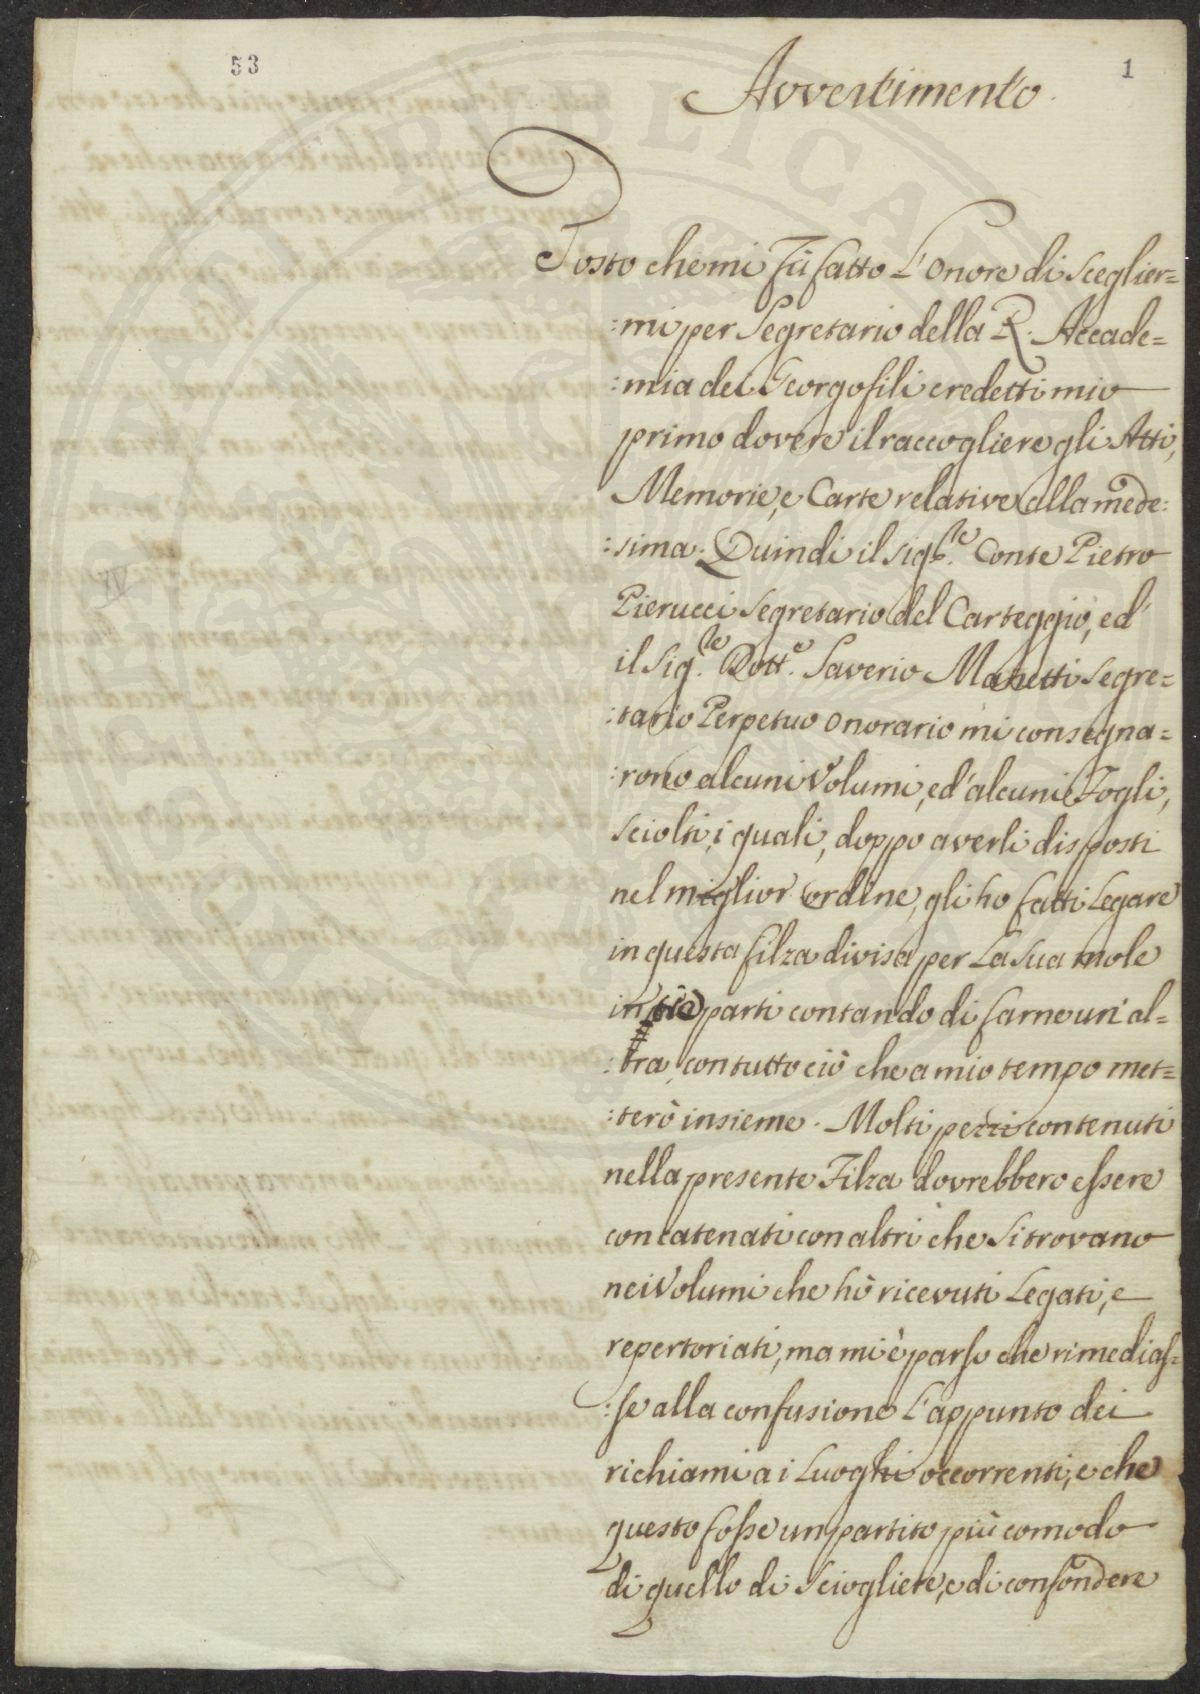 53
1
Avvertimento.
Tosto che mi fù fatto L'onore di sceglier=
:mi per Segretario della R. Accade=
:mia dei Georgofili credetti mio
primo dovere il raccogliere gli Atti,
Memorie, e Carte relative alla mede:
:sima. Quindi il Sig.re Conte Pietro
Pierucci Segretario del Carteggio, ed
il Sig.re Dott.e Saverio Manetti Segre=
:tario Perpetuo onorario mi consegna=
:rono alcuni Volumi, ed'alcuni Fogli,
sciolti, i quali, doppo averli disposti
nel miglior ordine, gli ho fatti Legare
in questa filza divisa per La sua mole
in parti contando di farne un'al=
:tra, con tutto ciò che a mio tempo met=
:terò insieme. Molti pezzi contenuti
nella presente Filza dovrebbero essere
concatenati con altri che si trovano
nei Volumi che hò ricevuti Legati, e
repertoriati, ma mi è parso che rimedias=
:se alla confusione L'appunto dei
richiami a i Luoghi occorrenti, e che
questo fosse un partito più comodo
di quello di sciogliere, e di confondere
IV